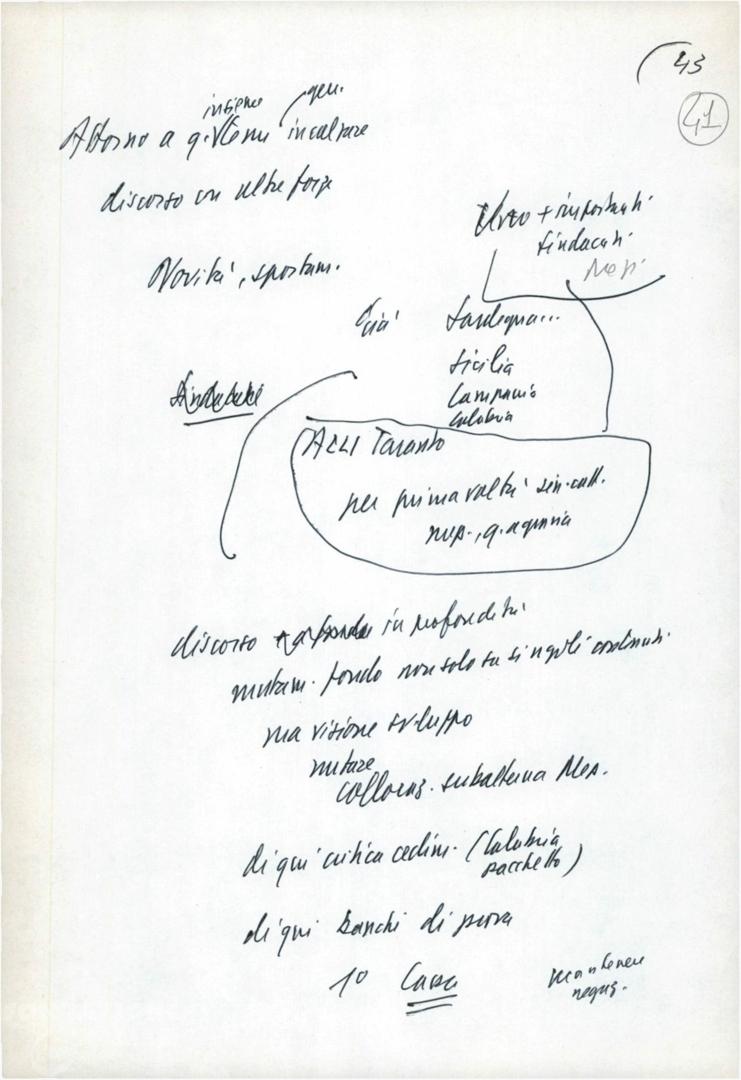 43
41
insieme gen.
Attorno a q. Vertenze incalzare
discorso con altre forze
Uno + importanti
sindacati
Mezz.
Novità, spostam.
già Sardegna...
Sicilia
Campania
Calabria
Sindacati
ACLI Taranto
per prima volta sin. catt.
mezz., q. agraria
discorso in profondità
mutam. fondo non solo su singoli
ma visione sviluppo
mutare
collocaz. subalterna Mez.
di qui critica cedim. (Calabria
pacchetto)
di qui banchi di prova
1° Cassa
mantenere
negoz.